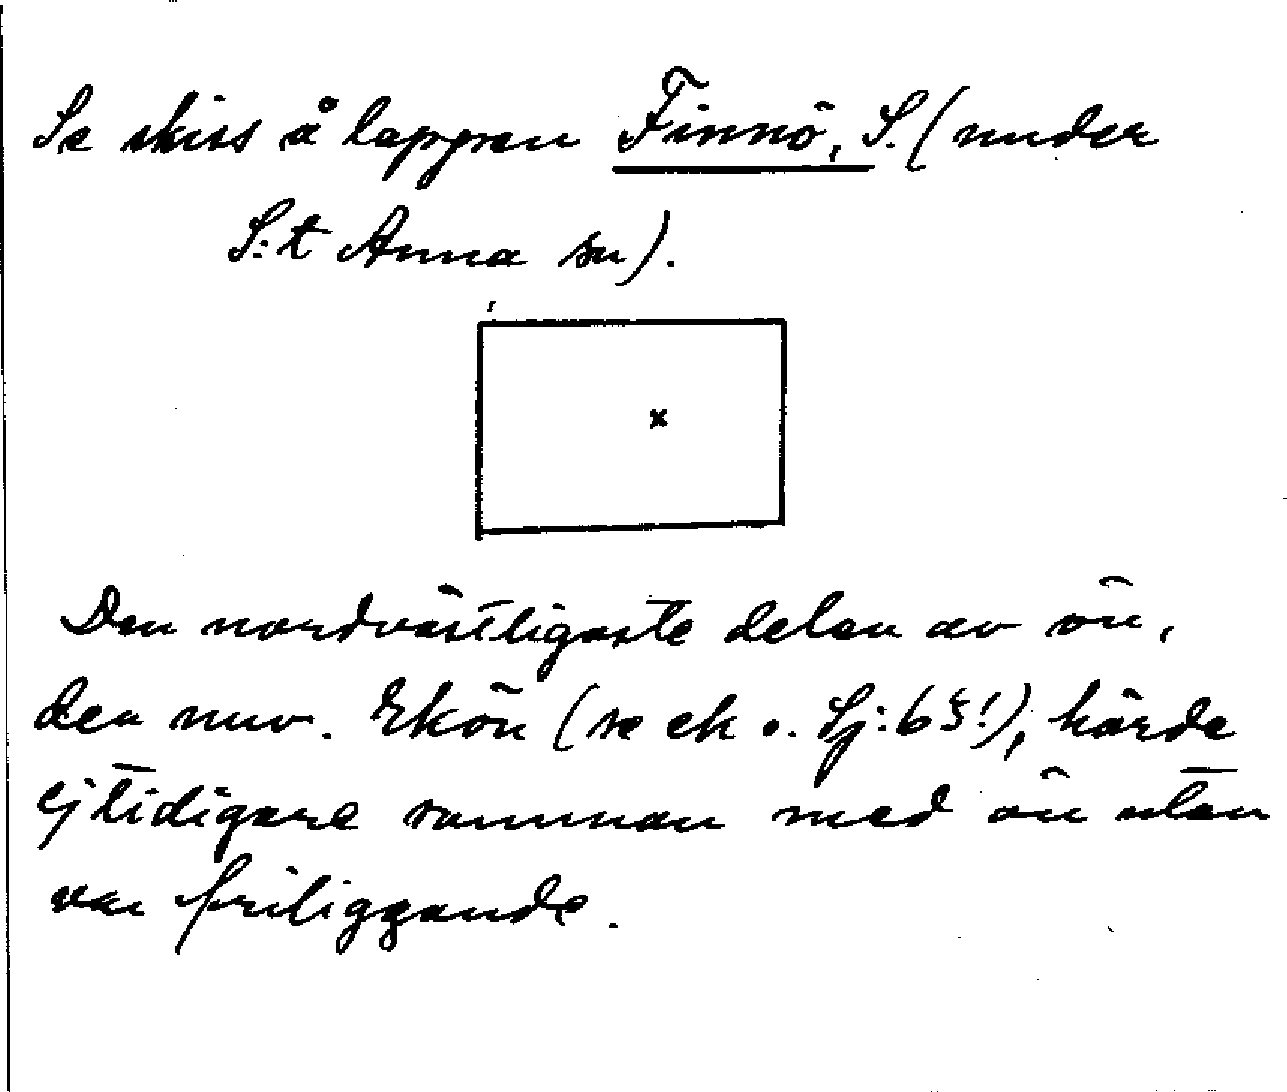 Se skiss å lappen Finnö, S. (under
S:t Anna sn).
x
Den nordvästligaste delen av ön,
den nuv. Ekön (se ek o. Sj:65!), hörde
ej tidigare samman med ön utan
var friliggande.